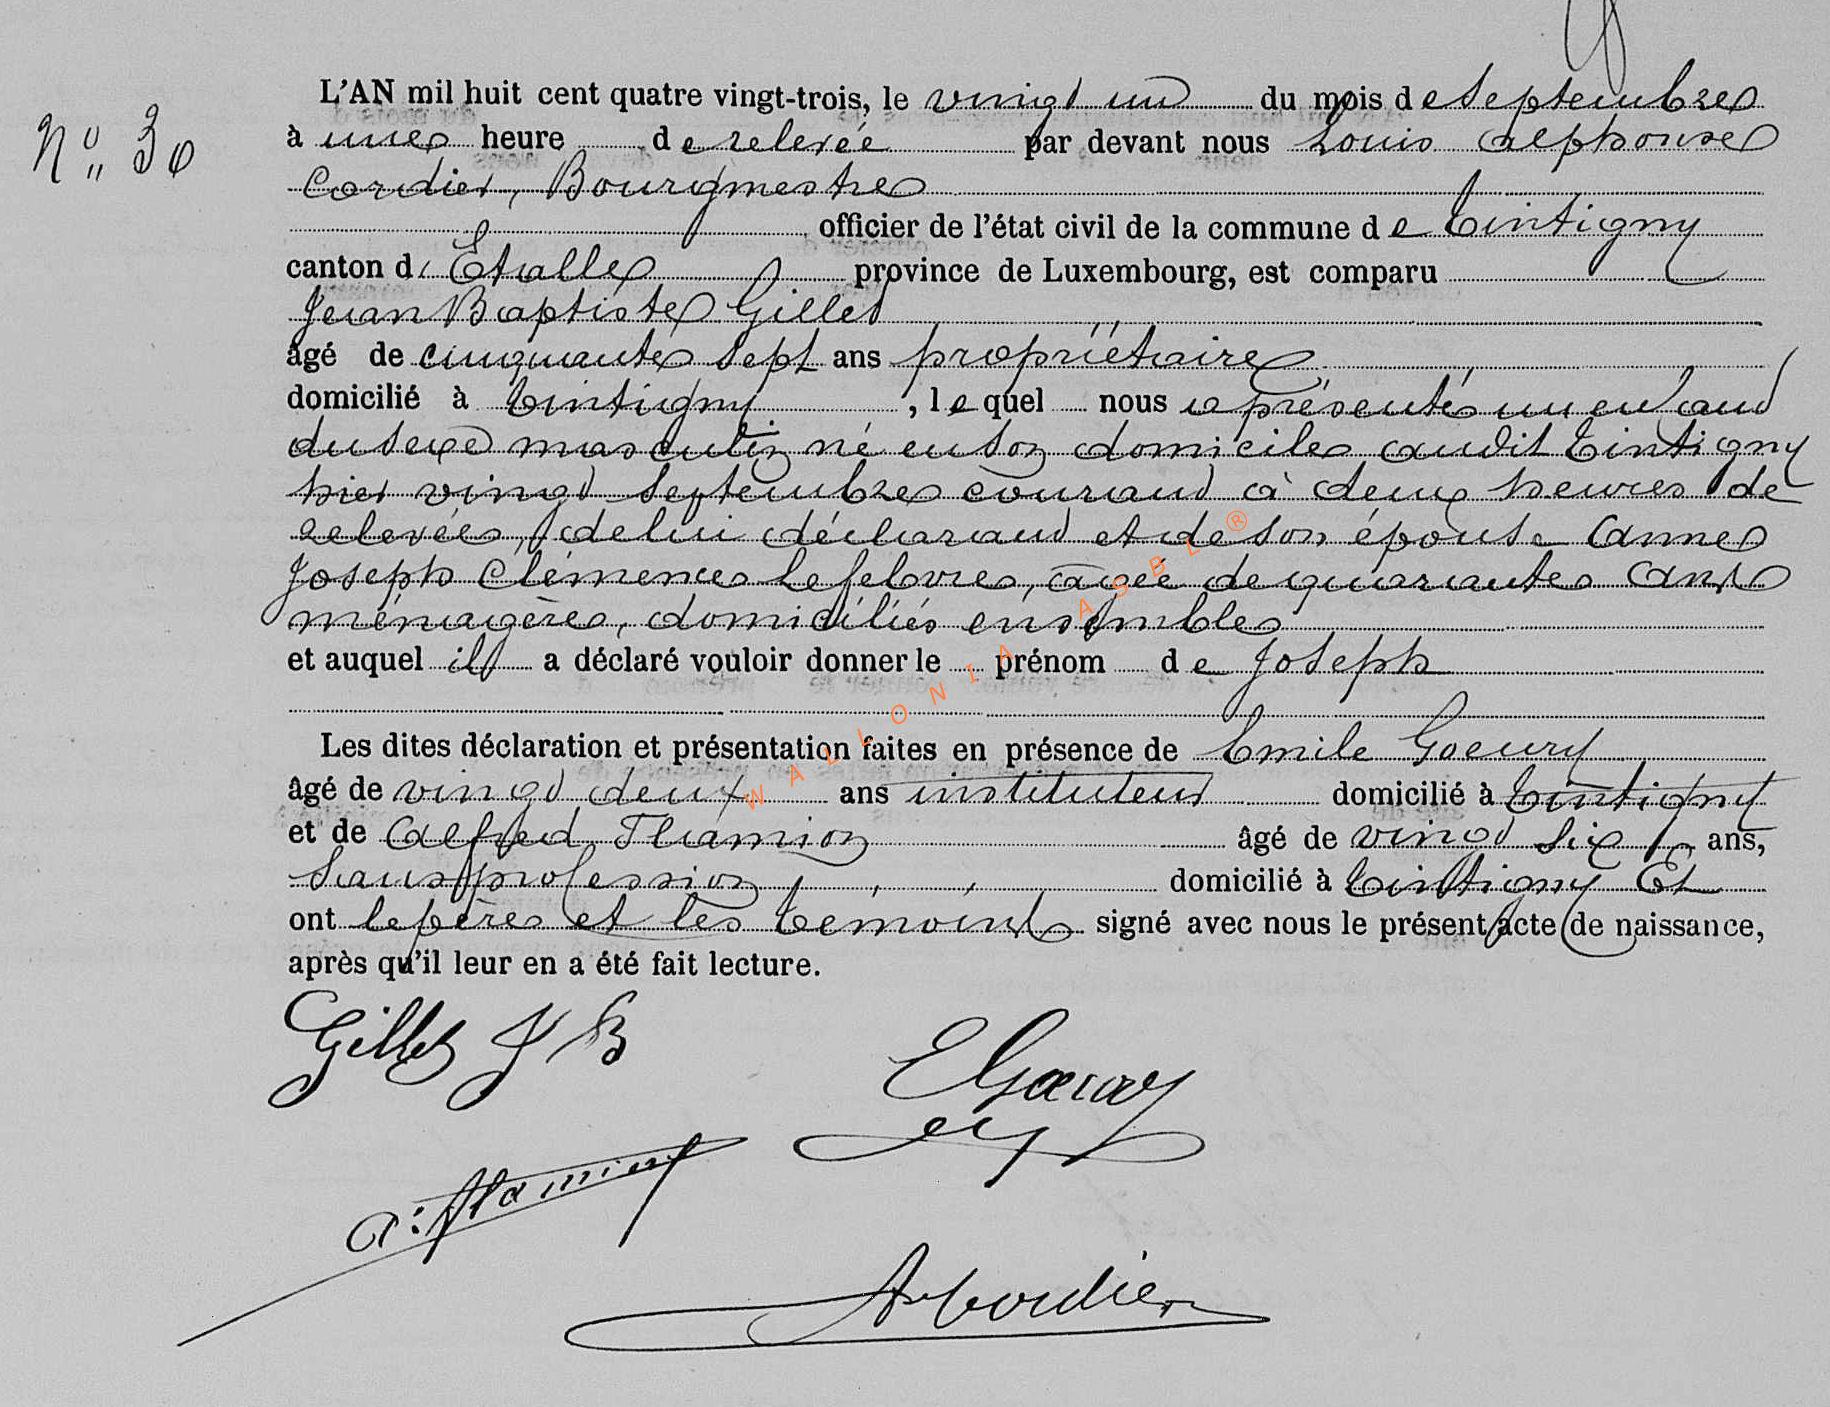 L'AN mil huit cent quatre vingt-trois, le vingt un du mois de Septembre
N° 30
à une heure de relevée par devant nous Louis Alphonse
Cordier, Bourgmestre
officier de l'état civil de la commune de Tintigny
canton d'Etalle province de Luxembourg, est comparu
Jean Baptiste Gillet
âgé de cinquante sept ans propriétaire
domicilié à Tintigny, lequel nous a présenté un enfant
du sexe masculin né en son domicile audit Tintigny
hier vingt Septembre courant à deux heures de
relevée, de lui déclarant et de Son épouse Anne
Joseph Clémence Lefebvre, agée de quarante ans
ménagère, domiciliés ensemble
et auquel il a déclaré vouloir donner le prénom de Joseph
Les dites déclaration et présentation faites en présence de Emile Goeury
âgé de vingt deux ans instituteur domicilié à Tintigny
et de Alfred Thiamion âgé de vingt Six ans,
Sans profession domicilié à Tintigny Et
ont le père et les témoins signé avec nous le présent acte de naissance,
après qu'il leur en a été fait lecture.
Gillet J B
E Goeury
A Cordier
WALLONIA ASBL ®